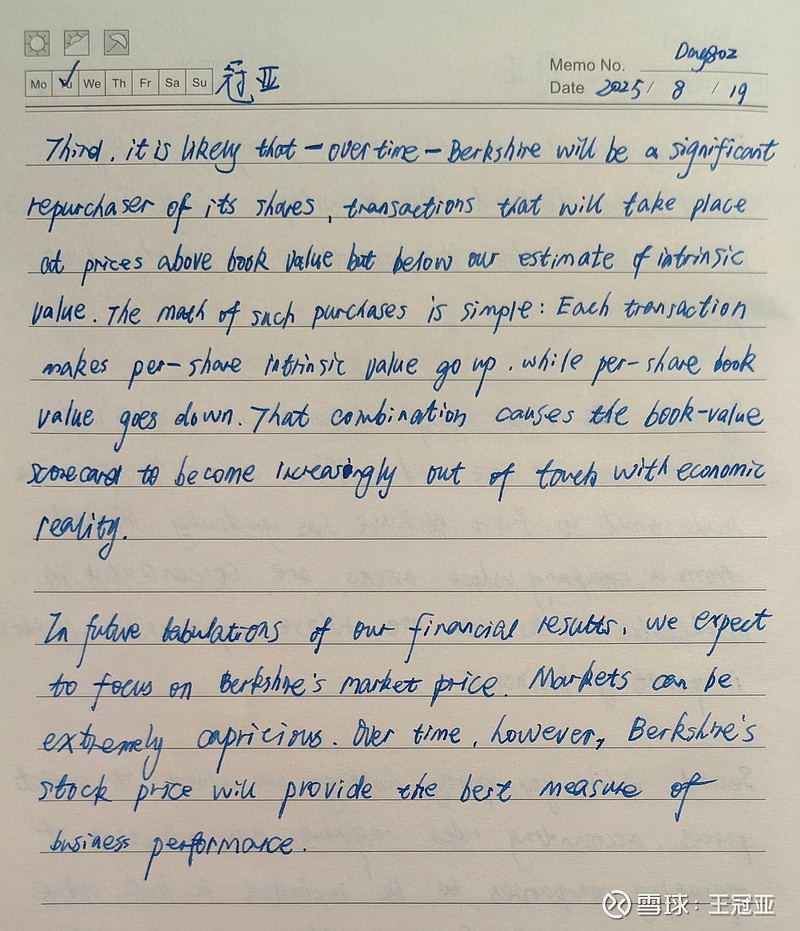 Memo No. Day802
Mo Tu We Th Fr Sa Su 冠亚
Date 2025/ 8 / 19
Third, it is likely that - over time - Berkshire will be a significant
repurchaser of its shares, transactions that will take place
at prices above book value but below our estimate of intrinsic
value. The math of such purchases is simple: Each transaction
makes per-share intrinsic value go up, while per-share book
value goes down. That combination causes the book-value
scorecard to become increasingly out of touch with economic
reality.
In future tabulations of our financial results, we expect
to focus on Berkshire's market price. Markets can be
extremely capricious. Over time, however, Berkshire's
stock price will provide the best measure of
business performance.
雪球:王冠亚